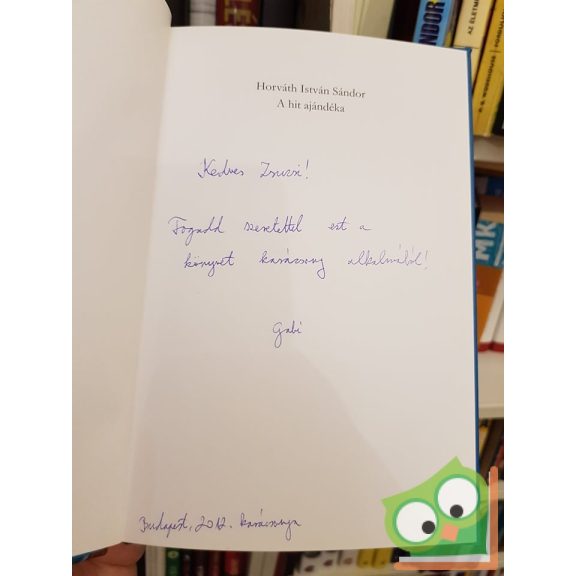 Horváth István Sándor
A hit ajándéka
Kedves Zsuzsi!
Fogadd szeretettel ezt a
könyvet karácsony alkalmából!
Gabi
Budapest, 2012. karácsonya
NDOR
AZ ÉLETME
P. G. WODEHOUSE
MK